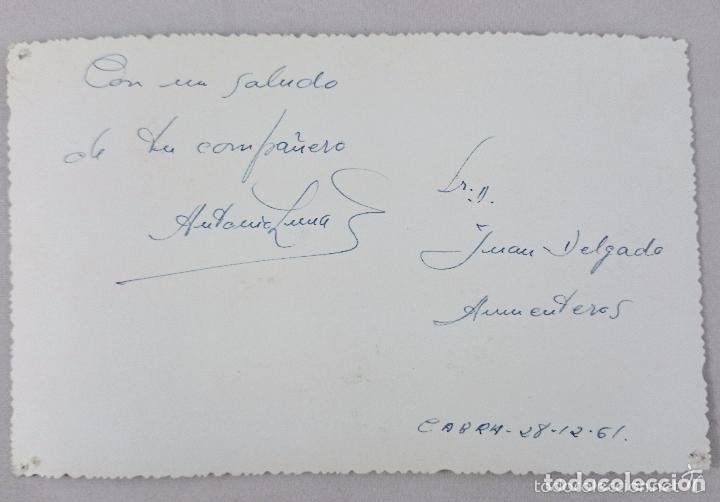 Con un saludo
de tu compañero
Antonio Luna
Sr. D.
Juan Delgado
Armenteros
CABRA-28-12-61.
todocoleccion
todocoleccion.net